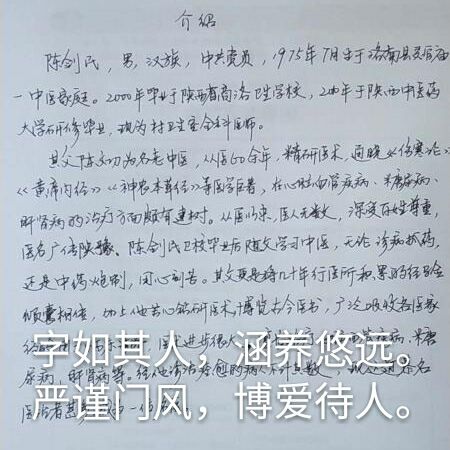 介绍
陈剑民，男，汉族，中共党员，1975年7月生于洛南县灵官庙
一中医家庭。2000年毕业于陕西省商洛卫生学校，年于陕西中医药
大学研修毕业，现为村卫生室全科医师。
其父陈文功为名老中医，从医60余年，精研医术，通晓《伤寒论》
《黄帝内经》《神农本草经》等医学巨著，在心脑血管疾病、糖尿病、
肝肾病的治疗方面颇有建树。从医以来，医人无数，深受百姓尊重，
医名广传陕豫。陈剑民卫校毕业后随父学习中医，无论诊病抓药，
还是中药炮制，用心刻苦。其父更是将几十年行医所积累的经验
倾囊相传，加上他苦心钻研医术，博览古今医书，广泛吸收各医家
医术进步很大，病、糖
字如其人，涵养悠远。
尿病，肝肾病等。经他诊治痊愈的病人不计其数，
严谨门风，博爱待人。